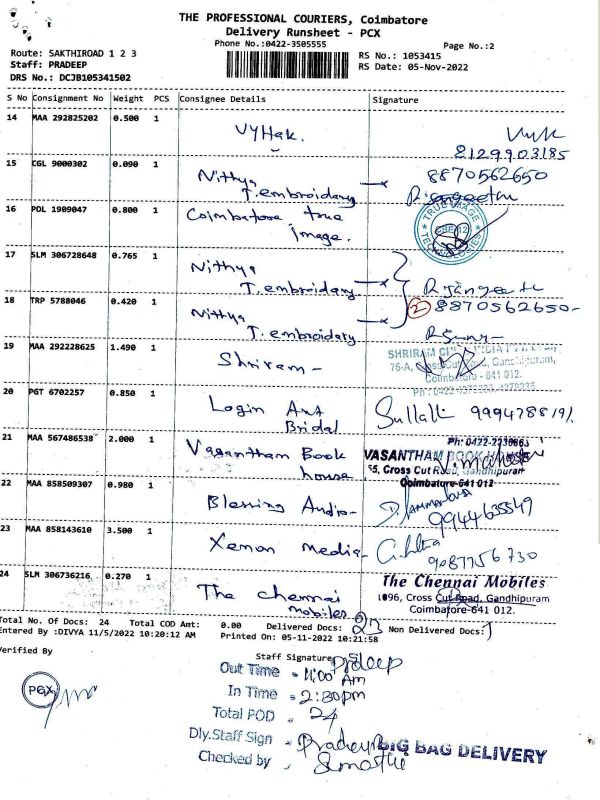 THE PROFESSIONAL COURIERS, Coimbatore
Delivery Runsheet - PCX
Phone No.:0422-3505555
Page No.:2
Route: SAKTHIROAD 1 2 3
Staff: PRADEEP
DRS No.: DCJB105341502
RS No.: 1053415
RS Date: 05-Nov-2022
S No Consignment No Weight PCS Consignee Details Signature
14 MAA 292825202 0.500 1 VYHak.
8129903185
15 CGL 9000302 0.090 1 Nithya T.embroidary 8870562650
R.sangeetha
16 POL 1909047 0.800 1 Coimbatore true image.
TRUE IMAGE TECHNOLOGIES CBE-12
17 SLM 306728648 0.765 1 Nithya T.embroidary
18 TRP 5788046 0.420 1 Nithya T.embroidary 2 8870562650-
19 MAA 292228625 1.490 1 Shriram-
SHRIRAM
76-A, Cross Cut Road, Gandhipuram,
Coimbatore - 641 012.
20 PGT 6702257 0.850 1 Login Art Bridal
21 MAA 567486538 2.000 1 Vasantham Book house
VASANTHAM BOOK HOUSE
Cross Cut Road, Gandhipuram
Coimbatore-641 012
22 MAA 858509307 0.980 1 Blessing Audio-
9944635549
23 MAA 858143610 3.500 1 Xenon Media-
24 SLM 306736216 0.270 1 The chennai mobiles
the Chennai Mobiles
1096, Cross Cut Road, Gandhipuram
Coimbatore-641 012.
Total No. Of Docs: 24 Total COD Amt: 0.00 Delivered Docs: 23 Non Delivered Docs: 1
Entered By :DIVYA 11/5/2022 10:20:12 AM Printed On: 05-11-2022 10:21:58
Verified By
Staff Signature Pradeep
PCX
Out Time - 11:00 Am
In Time - 2:30pm
Total POD - 24
Dly.Staff Sign - Pradeep
BIG BAG DELIVERY
Checked by